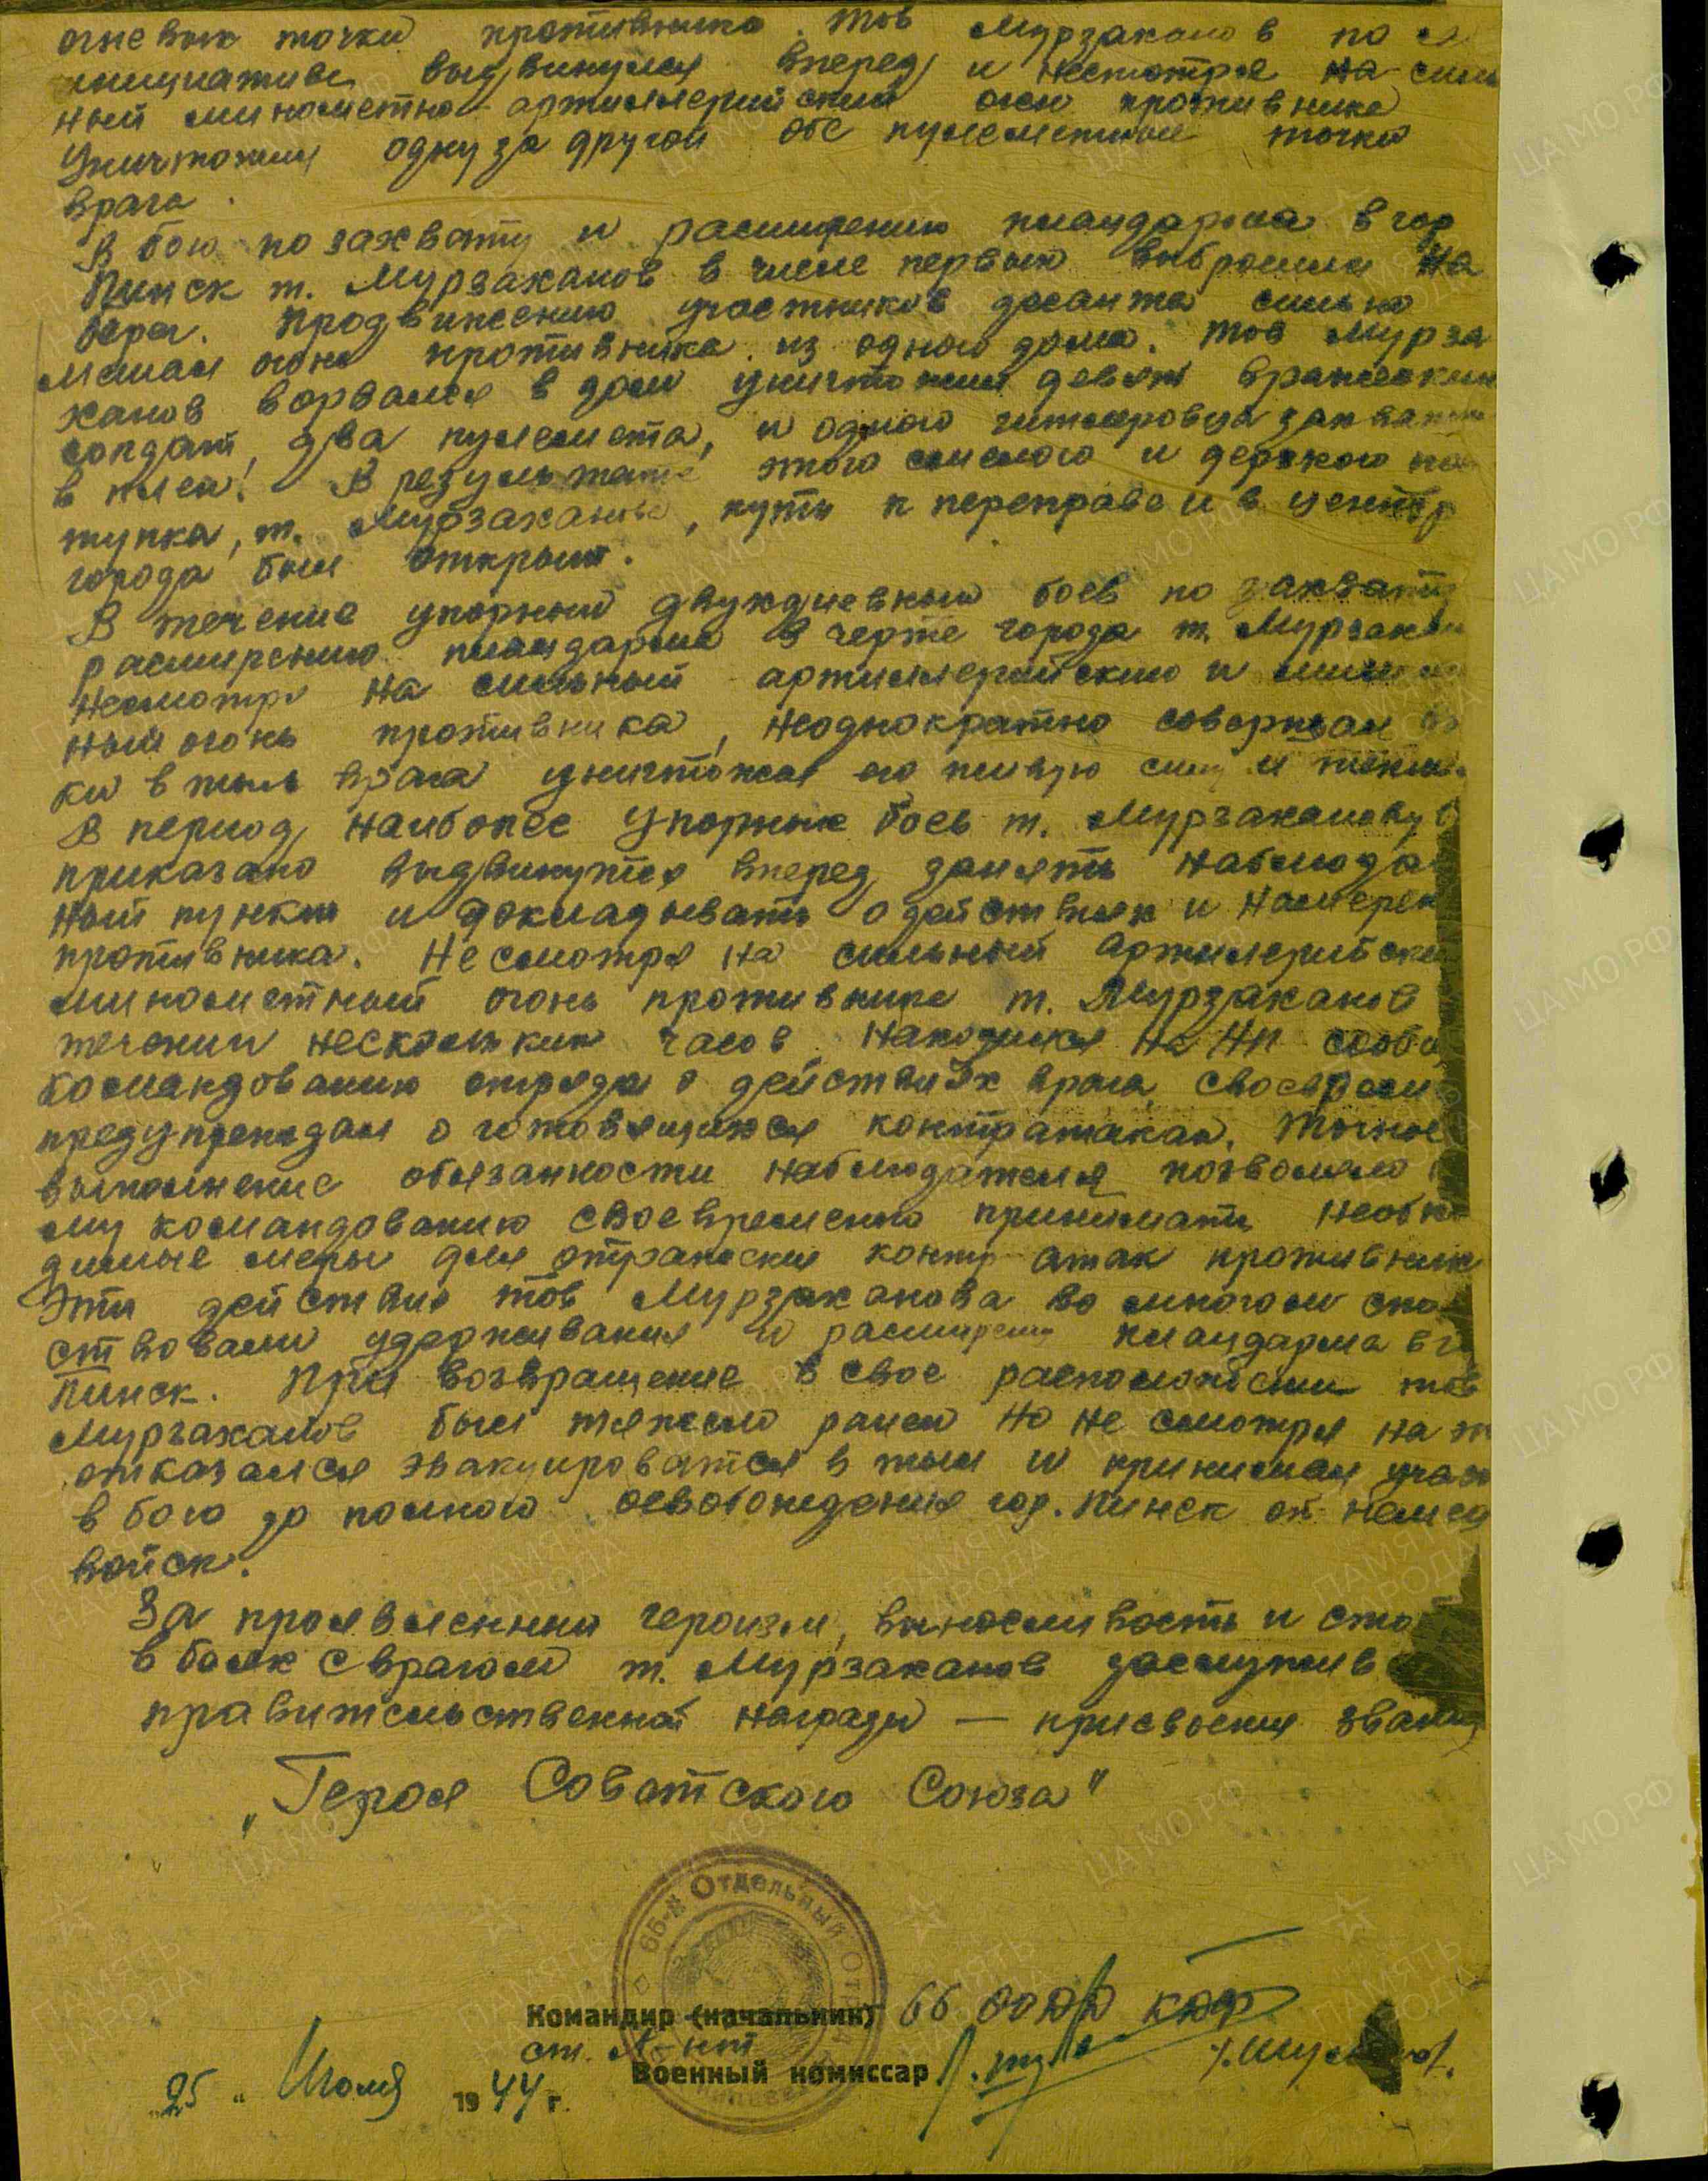 огневых точки противника. тов Мурзаканов по
инициативе выдвинулся вперед и несмотря на силь
ный минометно-артиллерийский огон противника
Уничтожил одну за другой обе пулеметные точки
врага.
В бою по захвату и расширению плацдарма в гор
Пинск т. Мурзаханов в числе первых выбросился на
берег. Продвижению участников десанта сильно
мешал огонь противника из одного дома. тов Мурза
ханов ворвался в дом уничтожил девят вражеских
солдат, два пулемета, и одного гитлеровца захватил
в плен. В результате этого смелого и дерзкого пос
тупка, т. Мурзаханова, путь к переправе и в центр
города был открыт.
В течение упорный двухдневных боев по захвату
расширению плацдарма в черте города т. Мурзакан
несмотря на сильный артиллерийскию и мином
ный огонь противника, неоднократно совершал
ки в тыль врага уничтожая его живую силу и техни
В период наиболее упорных боев т. Мурзаканову
приказано выдвинутся вперед занять наблюда
ный пункт и докладывать о действиях и намерен
противника. Несмотря на сильный артилерийски
минометный огонь противника т. Мурзаканов
течении нескольких часов находился на НП сооб
командованию отряда о действиях врага, своеврем
предупреждал о готовящихся контратаках. Точное
выполнение обязанности наблюдателя позволяло
му командованию своевременно принимать необх
димые меры для отражения контр-атак противник
Эти действия тов Мурзаканова во многом спо
ствовали удерживания и расширени плацдарма в г
Пинск. При возвращение в свое расположении тов
Мурзаханов был тяжело ранен но не смотря на эт
отказался эвакуироватся в тыл и принимал учас
в бою до полного освобождения гор. Пинск от немец
войск.
За проявленный героизм, выносливость и сто
в боях с врагом т. Мурзаканов заслужив
правительственной награды — присвоения звания
„Героя Советского Союза"
66-й Отдельный Отряд
Командир (начальник) 66
ст. л-нт
Военный комиссар
„25 „ Июля 1944 г.